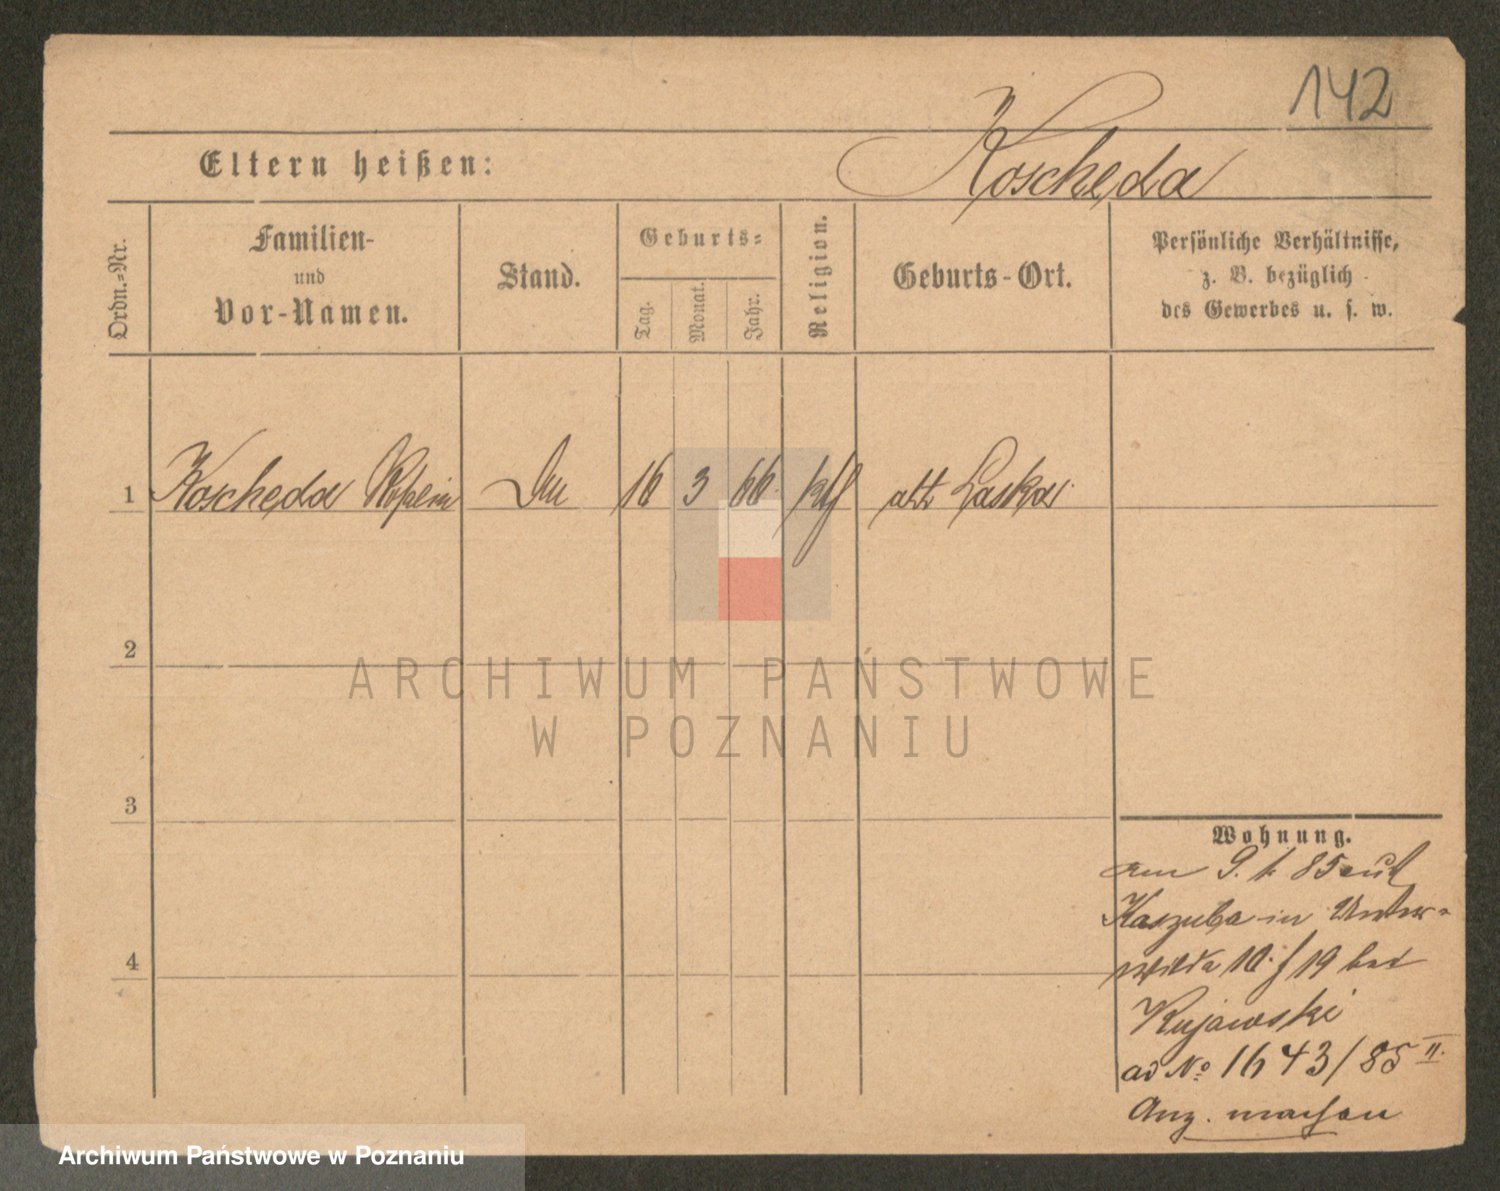 142
Eltern heißen:
Koscheda
Ordn.-Nr.
Familien-
und
Vor-Namen.
Stand.
Geburts-
Tag.
Monat.
Jahr.
Religion.
Geburts-Ort.
Persönliche Verhältnisse,
z. B. bezüglich
des Gewerbes u. s. w.
1 Koscheda 16 3 66 kth Laska
2
ARCHIWUM PAŃSTWOWE
W POZNANIU
3
4
Wohnung.
am 9. 85
Kaszuba in Unter-
wilda 10. 19 bei
Kujawski
ad No 1643/85 II.
Anz. machen
Archiwum Państwowe w Poznaniu